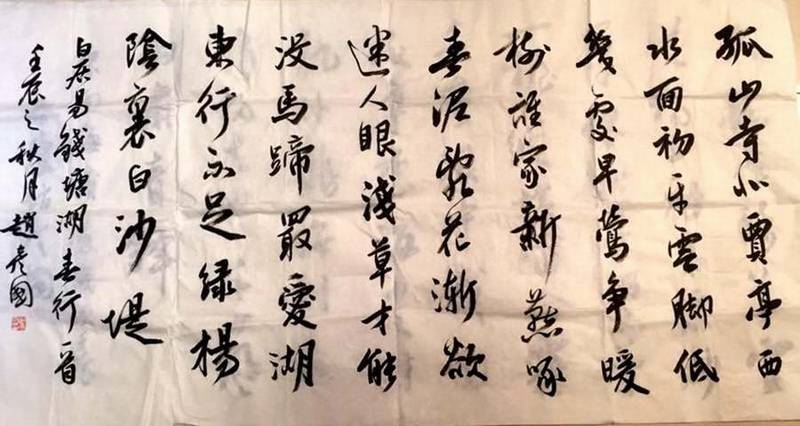 孤山寺北賈亭西
水面初平雲脚低
幾處早鶯争暖
樹誰家新燕啄
春泥亂花漸欲
迷人眼淺草才能
没馬蹄最愛湖
東行不足緑楊
陰裏白沙堤
白居易錢塘湖春行一首
壬辰之秋月趙彦國